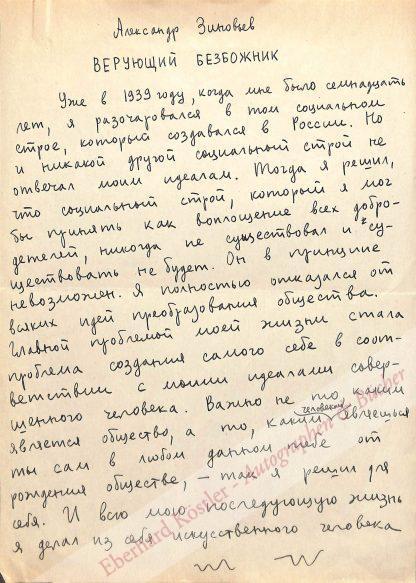 Александр Зиновьев
ВЕРУЮЩИЙ БЕЗБОЖНИК
Уже в 1939 году, когда мне было семнадцать
лет, я разочаровался в том социальном
строе, который создавался в России. Но
и никакой другой социальный строй не
отвечал моим идеалам. Тогда я решил,
что социальный строй, который я мог
бы принять как воплощение всех добро-
детелей, никогда не существовал и су-
ществовать не будет. Он в принципе
невозможен. Я полностью отказался от
всяких идей преобразования общества.
Главной проблемой моей жизни стала
проблема создания самого себе в соот-
ветствии с моими идеалами совер-
шенного человека. Важно не то, каким
является общество, а то, каким человеком являешься
ты сам в любом данном тебе от
рождения обществе, – так я решил для
себя. И всю мою последующую жизнь
я делал из себя искусственного человека
Eberhard Köstler - Autographen & Bücher